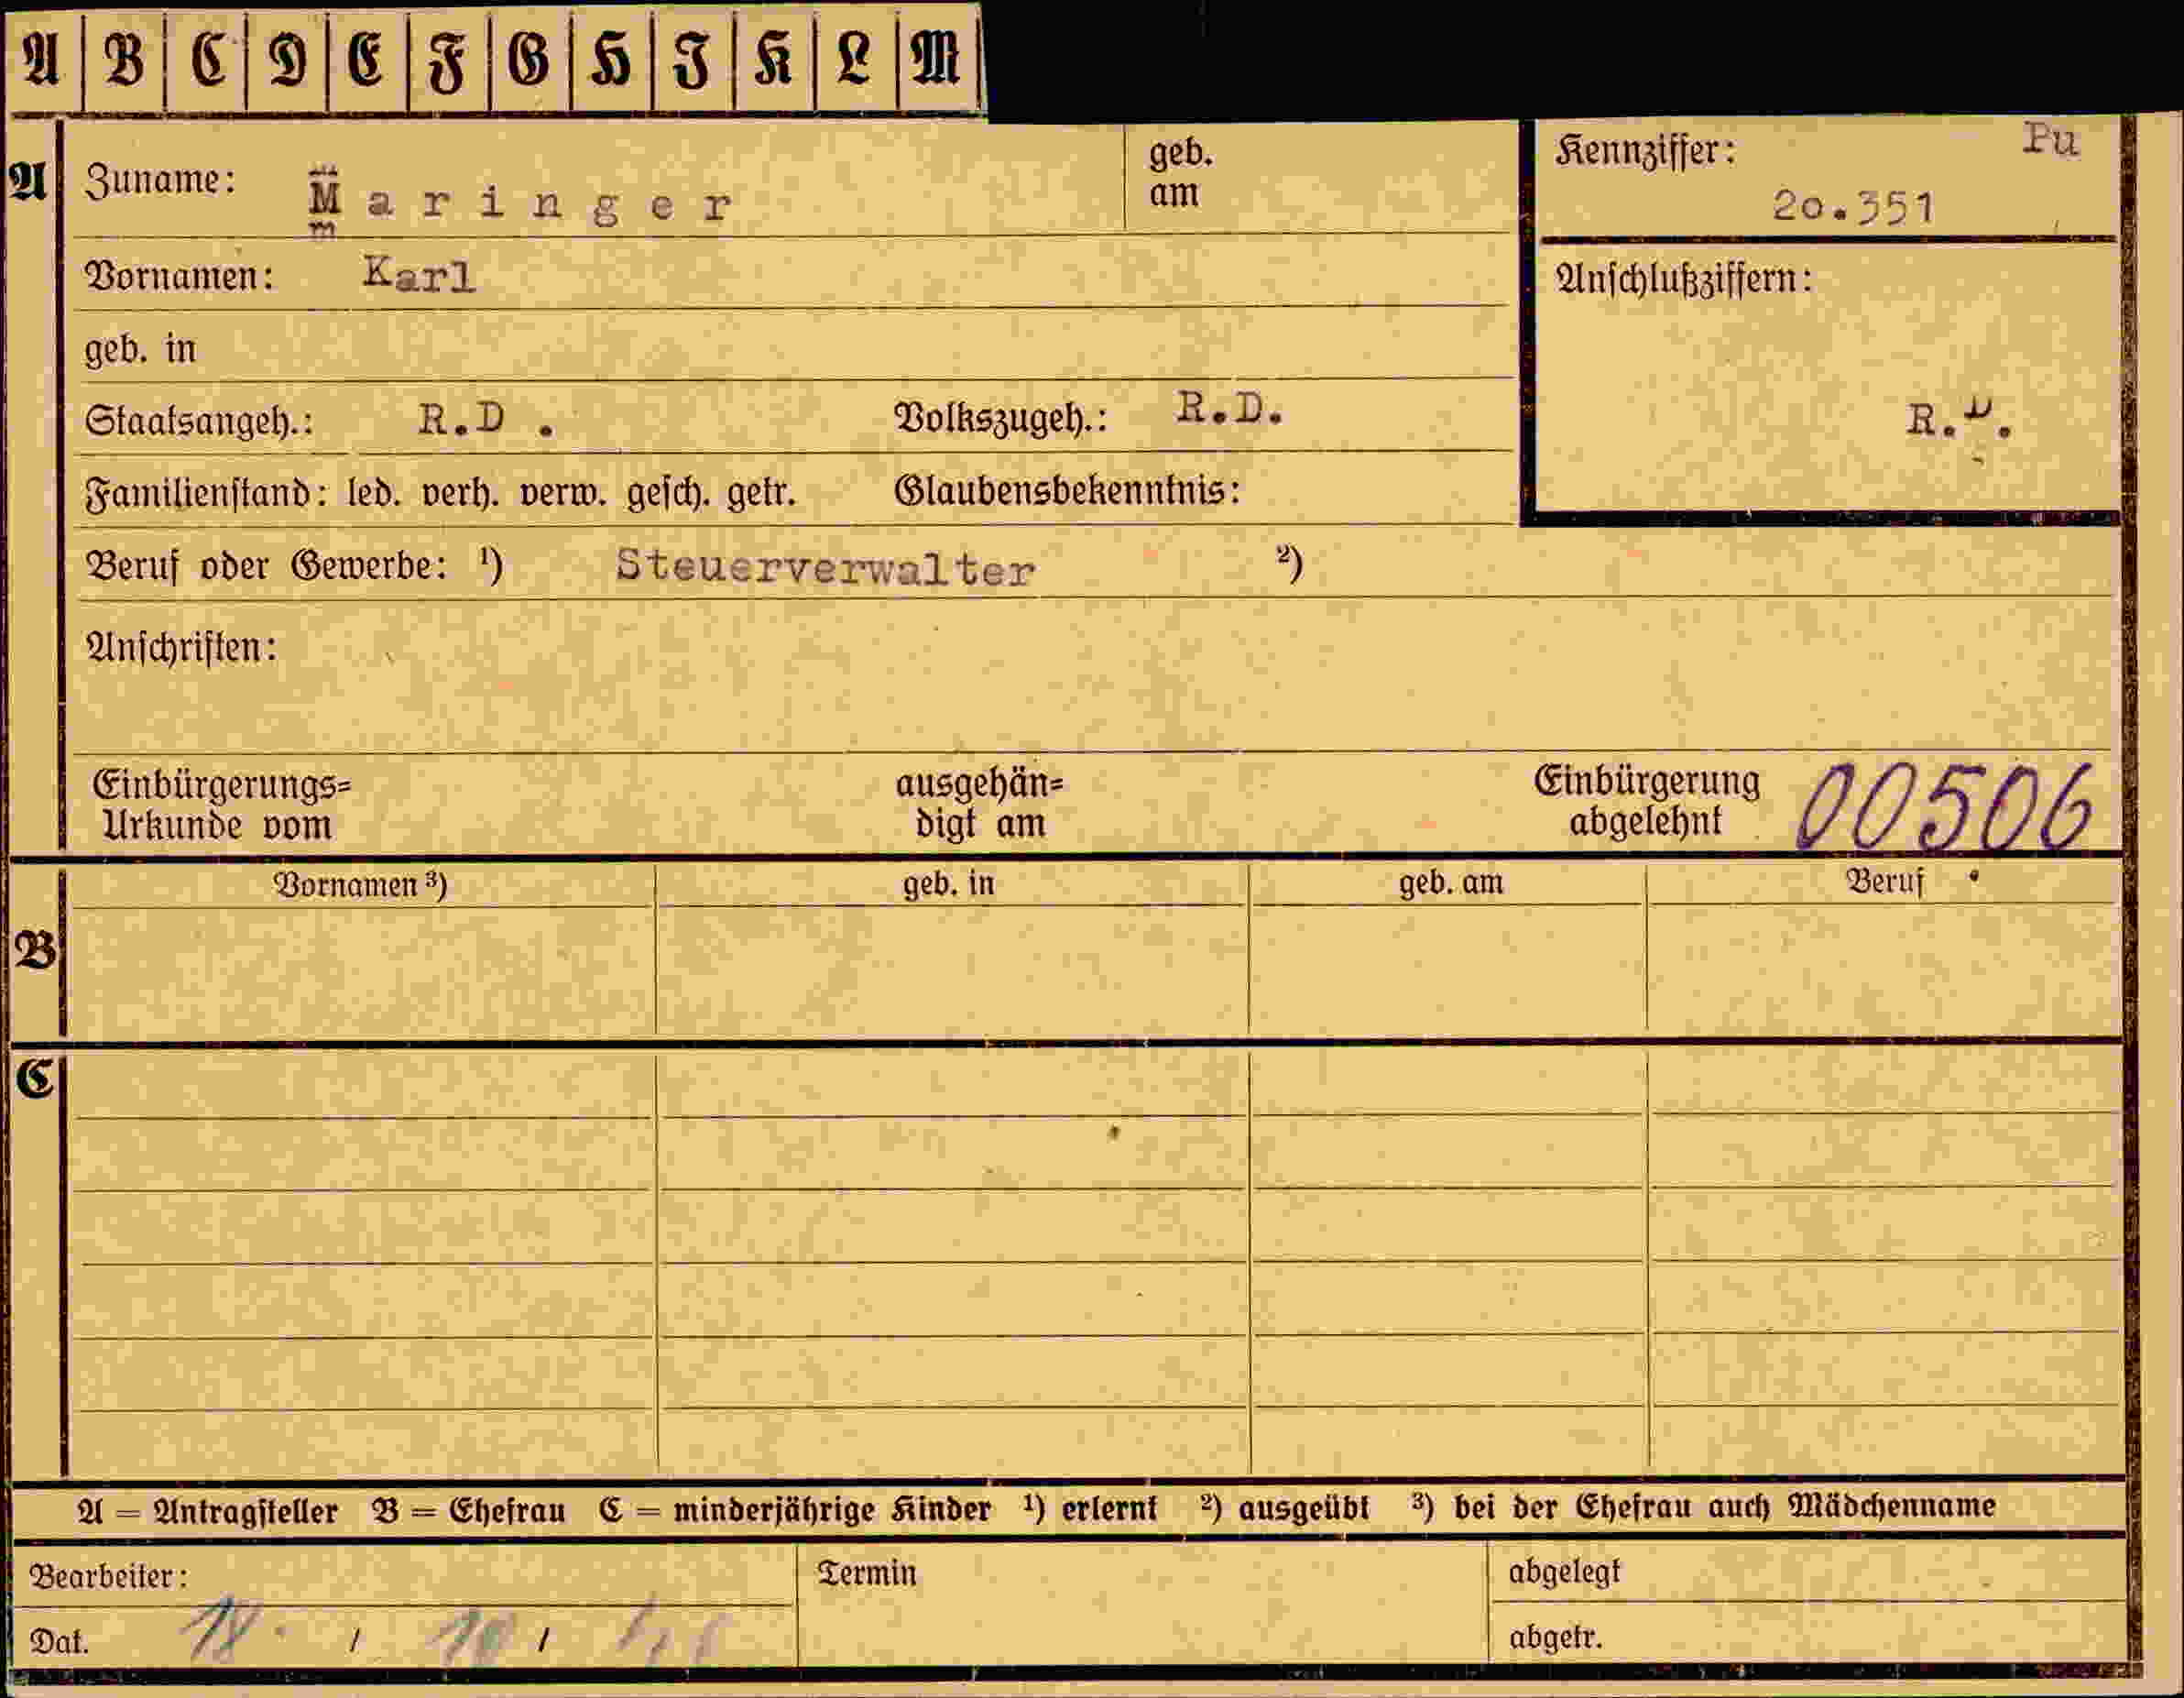 A B C D E F G H I K L M
A Zuname: Maringer geb. am
Kennziffer: Pu
20.351
Vornamen: Karl
Anschlußziffern:
geb. in
Staatsangeh.: R.D . Volkszugeh.: R.D.
R.D.
Familienstand: led. verh. verw. gesch. getr. Glaubensbekenntnis:
Beruf oder Gewerbe: ¹) Steuerverwalter ²)
Anschriften:
Einbürgerungs= ausgehän= Einbürgerung
Urkunde vom digt am abgelehnt 00506
Vornamen ³) geb. in geb. am Beruf
B
C
A = Antragsteller B = Ehefrau C = minderjährige Kinder ¹) erlernt ²) ausgeübt ³) bei der Ehefrau auch Mädchenname
Bearbeiter: Termin abgelegt
Dat. 18. / 10 / abgetr.